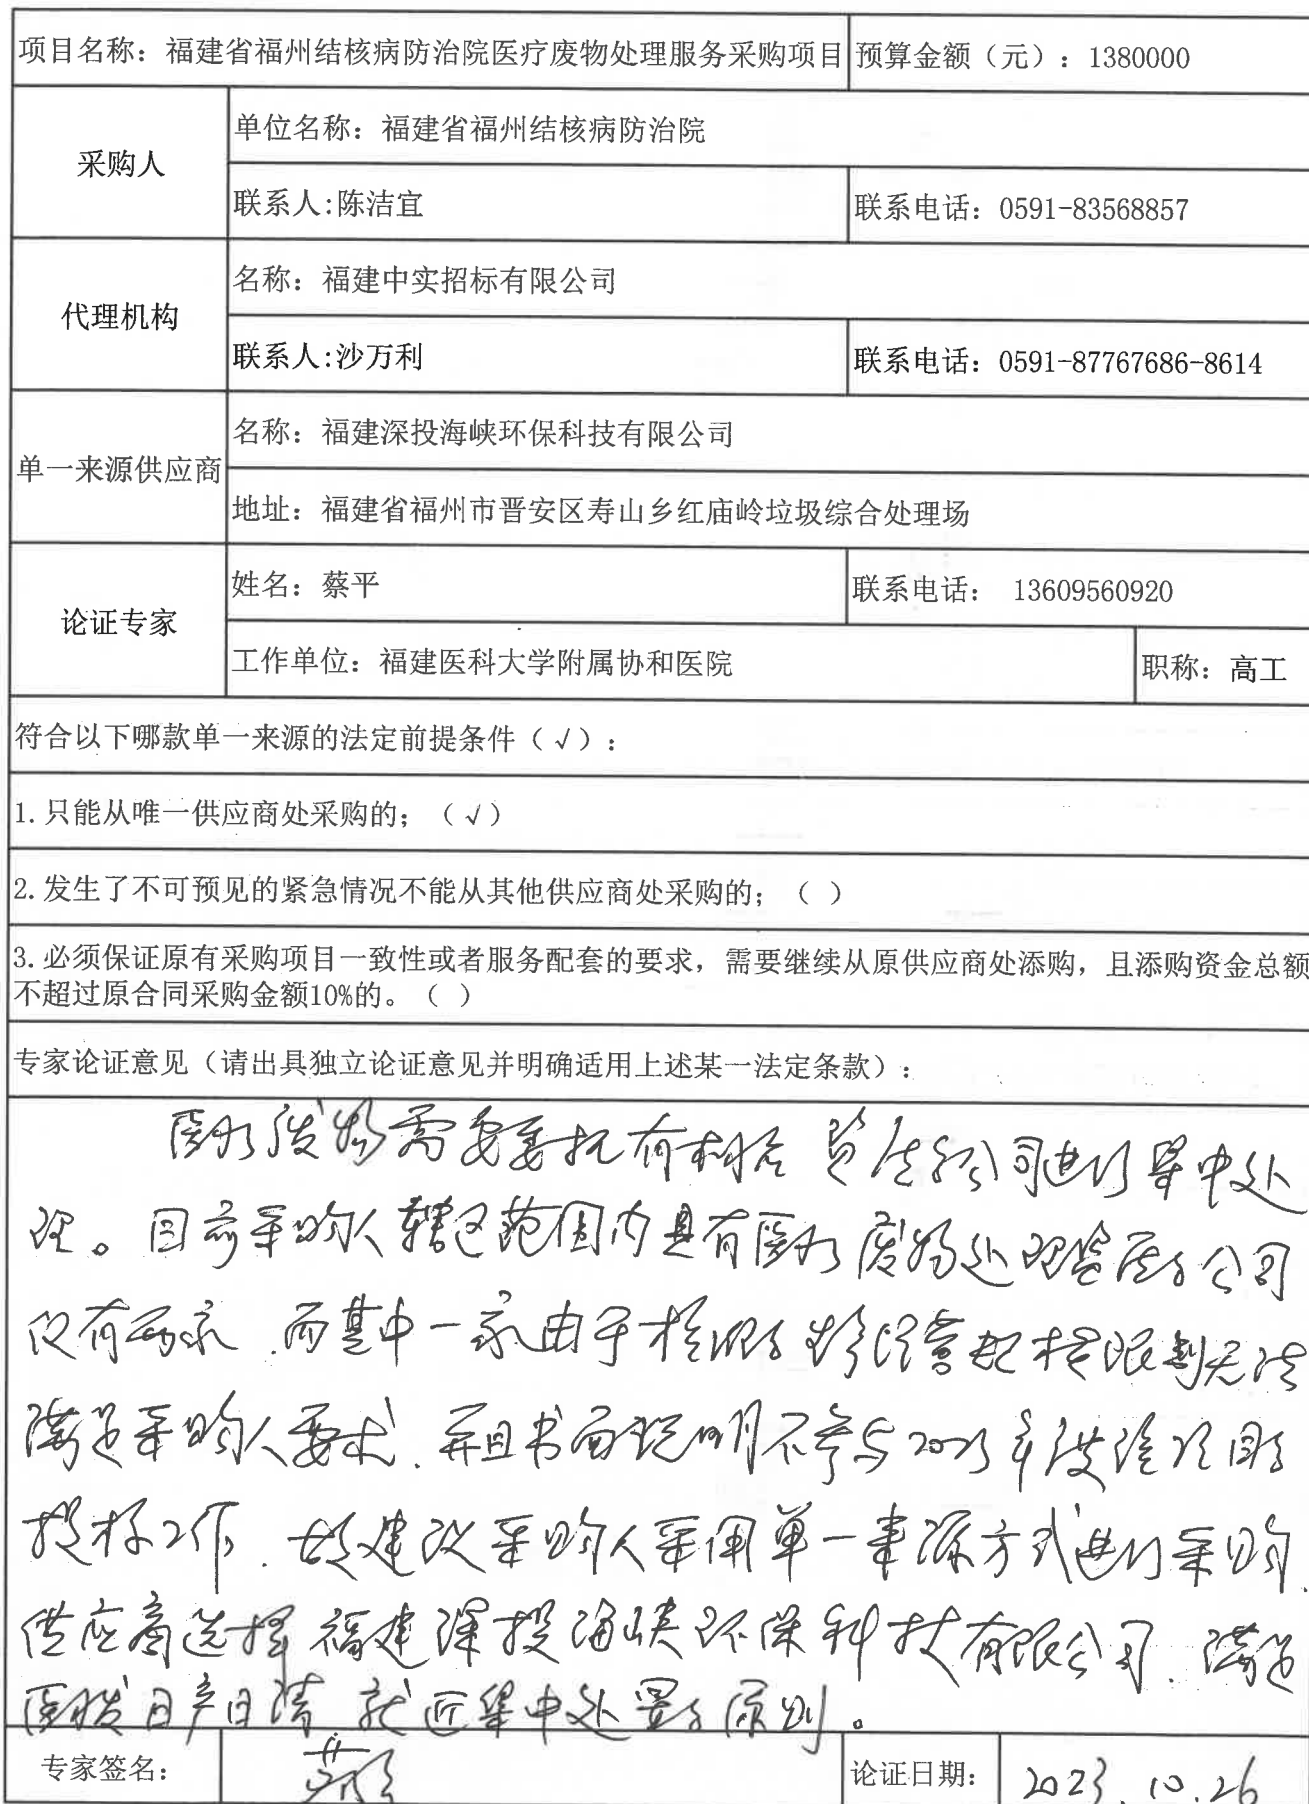 项目名称：福建省福州结核病防治院医疗废物处理服务采购项目 预算金额（元）：1380000
采购人
单位名称：福建省福州结核病防治院
联系人:陈洁宜 联系电话：0591-83568857
代理机构
名称：福建中实招标有限公司
联系人:沙万利 联系电话：0591-87767686-8614
单一来源供应商
名称：福建深投海峡环保科技有限公司
地址：福建省福州市晋安区寿山乡红庙岭垃圾综合处理场
论证专家
姓名：蔡平 联系电话： 13609560920
工作单位：福建医科大学附属协和医院 职称：高工
符合以下哪款单一来源的法定前提条件（√）：
1.只能从唯一供应商处采购的；（√）
2.发生了不可预见的紧急情况不能从其他供应商处采购的；（ ）
3.必须保证原有采购项目一致性或者服务配套的要求，需要继续从原供应商处添购，且添购资金总额
不超过原合同采购金额10%的。（ ）
专家论证意见（请出具独立论证意见并明确适用上述某一法定条款）：
医疗废物需要委托有相应资质的公司进行集中处
理。目前采购人辖区范围内具有医疗废物处理资质的公司
仅有两家，而其中一家由于核准的经营规模限制无法
满足采购人要求，并且书面说明不参与2023年度该项目的
投标工作，故建议采购人采用单一来源方式进行采购，
供应商选择福建深投海峡环保科技有限公司，满足
医废日产日清，就近集中处置的原则。
专家签名： 论证日期： 2023.10.26